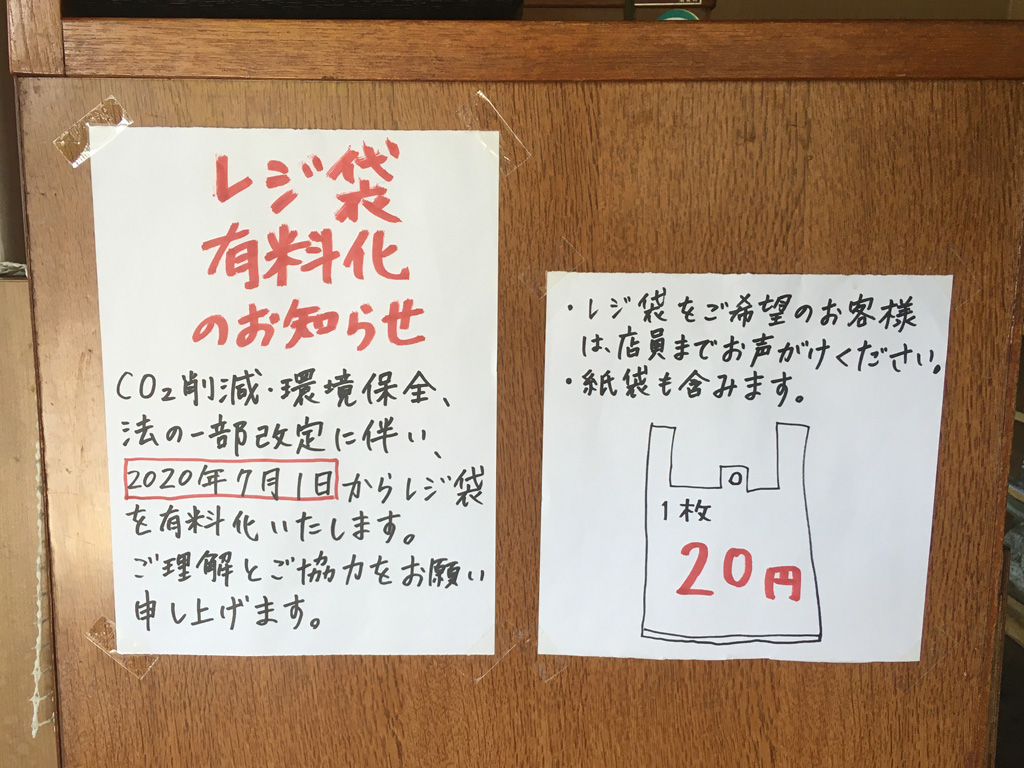 レジ袋
有料化
のお知らせ
CO₂削減・環境保全、
法の一部改定に伴い、
2020年7月1日からレジ袋
を有料化いたします。
ご理解とご協力をお願い
申し上げます。
・レジ袋をご希望のお客様
は、店員までお声がけください。
・紙袋も含みます。
1枚
20円